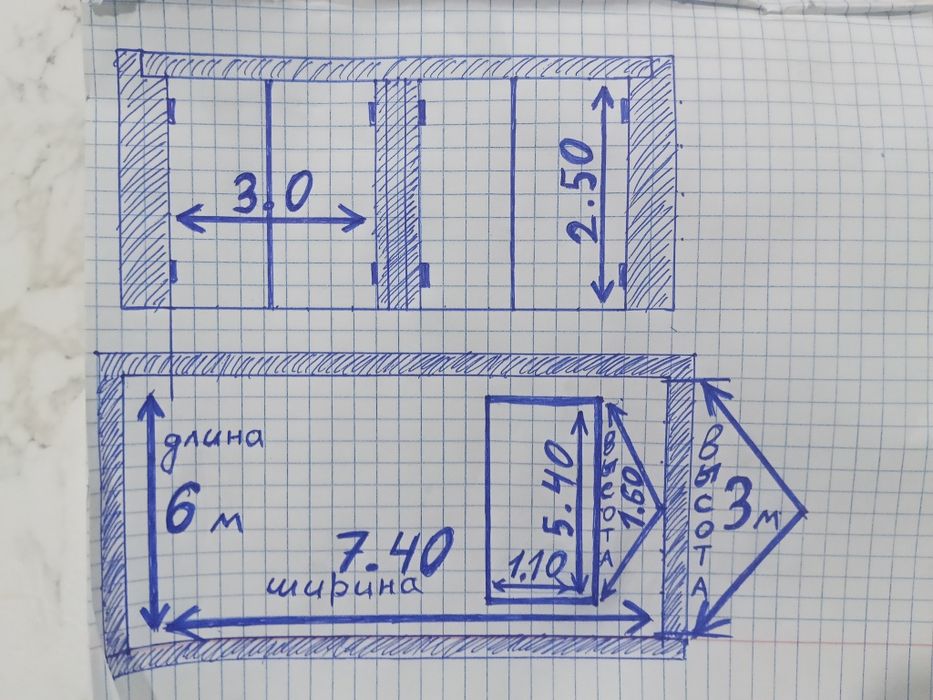 3.0
2.50
длина
6 м
7.40
ширина
5.40
1.10
высота
1.60
высота
3 м